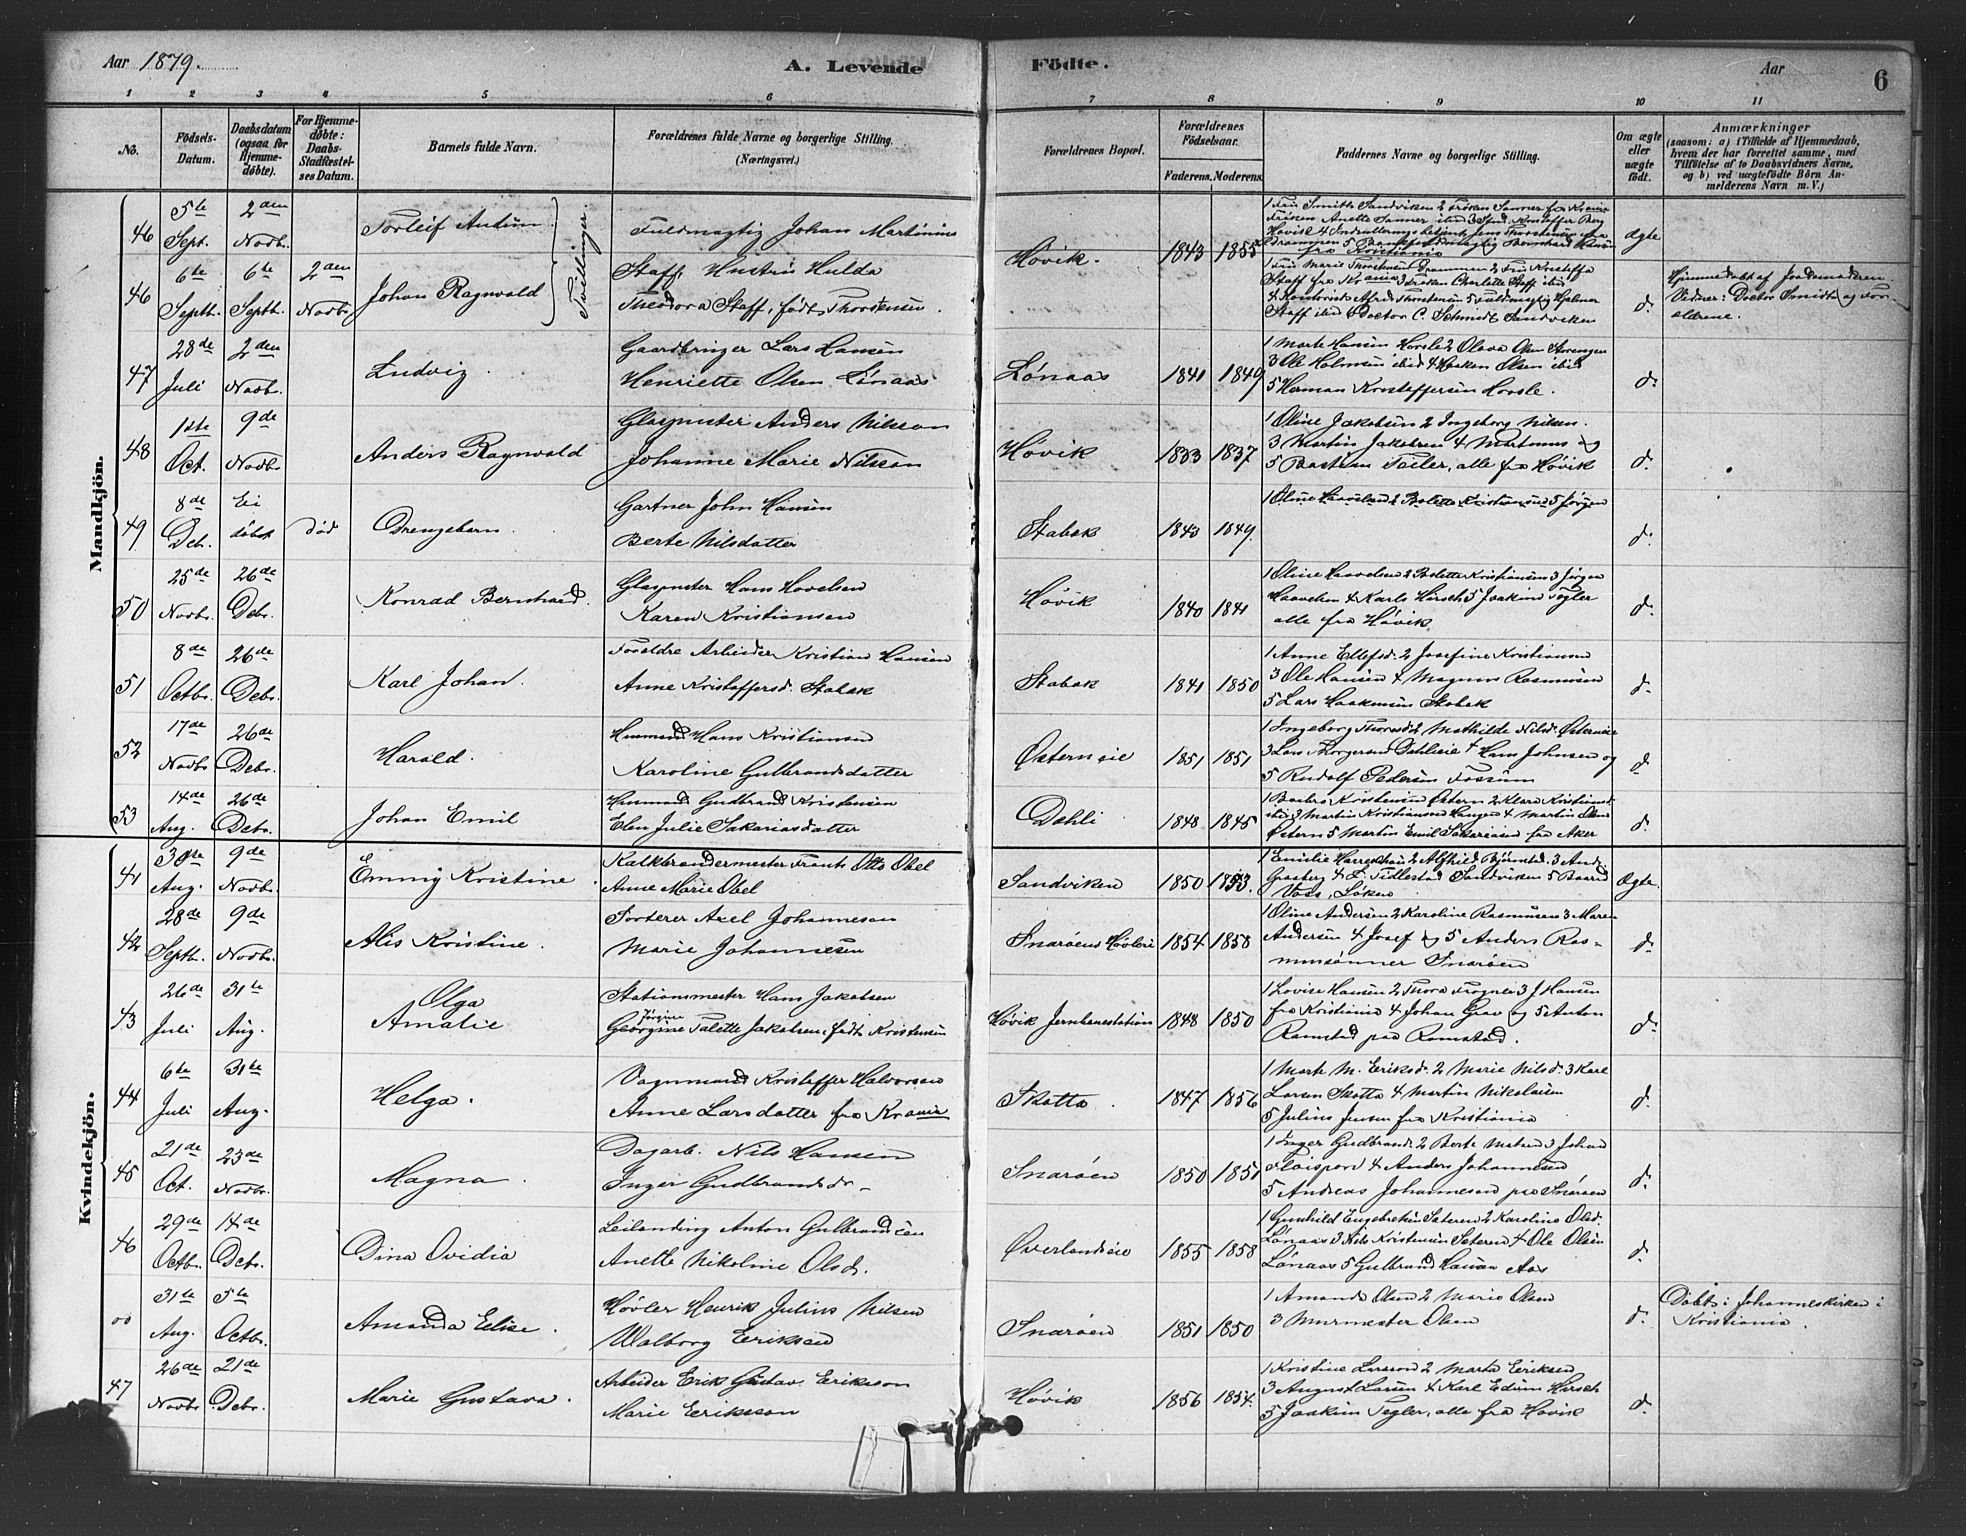 Aar 1879.
A. Levende Födte.
Aar
6
1 2 3 4 5 6 7 8 9 10 11
No.
Födsels-Datum.
Daabsdatum (ogsaa for Hjemme-döbte).
For Hjemme-döbte: Daabs-Stadfæstel-ses Datum.
Barnets fulde Navn.
Forældrenes fulde Navne og borgerlige Stilling. (Næringsvei.)
Forældrenes Bopæl.
Forældrenes Födselsaar.
Faderens. Moderens.
Faddernes Navne og borgerlige Stilling.
Om ægte eller uægte födt.
Anmærkninger
(saasom: a) i Tilfælde af Hjemmedaab, hvem der har forrettet samme, med Tilföielse af to Daabsvidners Navne, og b) ved uægtefödte Börn An-melderens Navn m. V.)
Mandkjön.
46 5te Sept. 2den Novbr. Torleif Antum. Tvillinger.
Fuldmægtig Johan Martinius
Høvik. 1843 1855
1 Fru Smitts Sandviken 2 Frøken Sanner fra Krania
Frøken Anette Sanner ibid
Drammen 5 Bankfuldmægtig Bernhard
fra Kristiania
Ægte
46 6te Septb. 6te Septb. 2den Novbr. Johan Ragnvald
Staff, Hustru Hulda
Theodora Staff, født Thorstensen.
1 Fru Marie Thorstensen Drammen 2 Fru Kristeffa
Staff fra Krania 3 Frøken Charlotte Staff ibid
4 Kontorist Alfred Thorstensen 5 Fuldmægtig Hjalmar
Staff ibid 6 Doctor C. Schmidt Sandviken
d.
Hjemmedøbt af Jordemoderen
Vidner: Doctor Smidt og For-
ældrene.
47 28de Juli 2den Novbr. Ludvig.
Gaardbruger Lars Hansen
Henriette Olsen Lønaas
Lønaas 1841 1849
1 Marte Hansen Horsle 2 Olava Olsen
3 Ole Holmsen ibid 4 Haaken Olsen ibid
5 Herman Kristoffersen Horsle.
d.
48 1ste Oct. 9de Novbr. Anders Ragnvald
Glaspuster Anders Nilsson
Johanne Marie Nilsson
Høvik 1833 1837
1 Oline Jakobsen 2 Ingeborg Nilsen.
3 Martin Jakobsen 4 Martinus og
5 Bastian Teiler, alle fra Høvik
d.
49 8de Dcb. Ei døbt død Drengebarn.
Gartner John Hansen
Berte Nilsdatter
Stabæk 1843 1849.
1 Oline Haavelsen 2 Bolette Kristiansen 3 Jørgen
d.
50 25de Novbr. 26de Debr. Konrad Bernhard.
Glaspuster Hans Hovelsen
Karen Kristiansen
Høvik 1840 1841
1 Oline Haavelsen 2 Bolette Kristiansen 3 Jørgen
Haavelsen 4 Karls Hirsch 5 Joakim Tegler
alle fra Høvik
d.
51 8de Octbr. 26de Debr. Karl Johan.
Foreldre Arbeider Kristian Hansen
Anne Kristoffersd. Stabæk
Stabæk 1841 1850
1 Anne Ellefsd. 2 Josefine Kristiansen
3 Ole Hansen 4 Magnus Rasmussen
5 Lars Haakensen Stabæk
d.
52 17de Novbr 26de Debr. Harald.
Husmand Hans Kristiansen
Karoline Gulbrandsdatter
Østerneie 1851 1851
1 Ingeborg Thoresd 2 Mathilde Nilsd. Østerneie
3 Lars Thorgersen Dahlieie 4 Hans Johnsen og
5 Rudolf Pedersen Fossum
d
53 14de Aug. 26de Debr. Johan Emil
Husmand Gudbrand Kristensen
Elen Julie Sakariasdatter
Dæhli 1848 1845
1 Barbro Kristensen Østern 2 Klara Kristians
ibid 3 Martin Kristiansen Haugen 4 Martin Olsen
Østern 5 Martin Emil Sakariasen fra Aker
d.
Kvindekjön.
41 30te Aug. 9de Novbr. Emmy Kristine
Kalkbrændermester Frants Otto Obel
Anne Marie Obel
Sandviken 1850 1853.
1 Emilie 2 Alfhild Bjørnstad. 3 And.
Graaberg 4 L. Tidlestad Sandviken 5 Baard
Voss, Løken
Ægte.
42 28de Septb. 9de Novbr. Alis Kristine.
Sorterer Axel Johannesen
Marie Johannesen
Snarøens Høvleri 1854 1858
1 Oline Andersen 2 Karoline Rasmussen 3 Maren
Andersen 4 Josef og 5 Anders Ras-
mussønner Snarøen
d.
43 26de Juli 31te Aug. Olga
Amalie
Stationsmester Hans Jakobsen
Jørgine
Georgine Talette Jakobsen, født Kristensen
Høvik Jernbanestation 1848 1850
1 Lovise Hansen 2 Thora Frogner 3 J Hansen
fra Kristiania 4 Johan Grav og 5 Anton
Ramstad paa Ramstad.
d.
44 6te Juli 31te Aug. Helga.
Vognmand Kristoffer Halvorsen
Anne Larsdatter fra Krania
Skotta. 1847 1856
1 Marte M. Eriksd. 2 Marie Nilsd. 3 Karl
Larsen Skotta 4 Martin Nikolaisen
5 Julius Jensen fra Kristiania
d.
45 21de Oct. 23de Novbr. Magna.
Dagarb. Nils Hansen
Inger Gudbrandsd.
Snarøen 1850 1851
1 Inger Gudbrandsd. 2 Berte 3 Johan
4 Anders Johannesen
5 Andreas Johannesen paa Snarøen
d.
46 29de Octbr. 14de Debr. Dina Ovidia
Leilænding Anton Gulbrandsen
Anette Nikoline Olsd.
Øverlandseie 1855 1858
1 Gunhild Engebretsen Sæteren 2 Karoline Olsd.
Lønaas 3 Nils Kristensen Sæteren 4 Ole Olsen
Lønaas 5 Gulbrand Hansen Aas
d.
00 31te Aug. 5te Octbr. Amanda Elise.
Høvler Henrik Julius Nilsen
Walborg Eriksen
Snarøen 1851 1850
1 Amanda Olsen 2 Marie Olsen
3 Murmester Olsen
d.
Døbt i Johanneskirken i
Kristiania.
47 26de Novbr 21de Debr. Marie Gustava.
Arbeider Erik Gustav Eriksson
Marie Eriksson
Høvik 1856 1854.
1 Kristine Larsson 2 Marta Eriksen
3 August Larsen 4 Karl Edvin Hirsch
5 Joakim Tegler, alle fra Høvik
d.